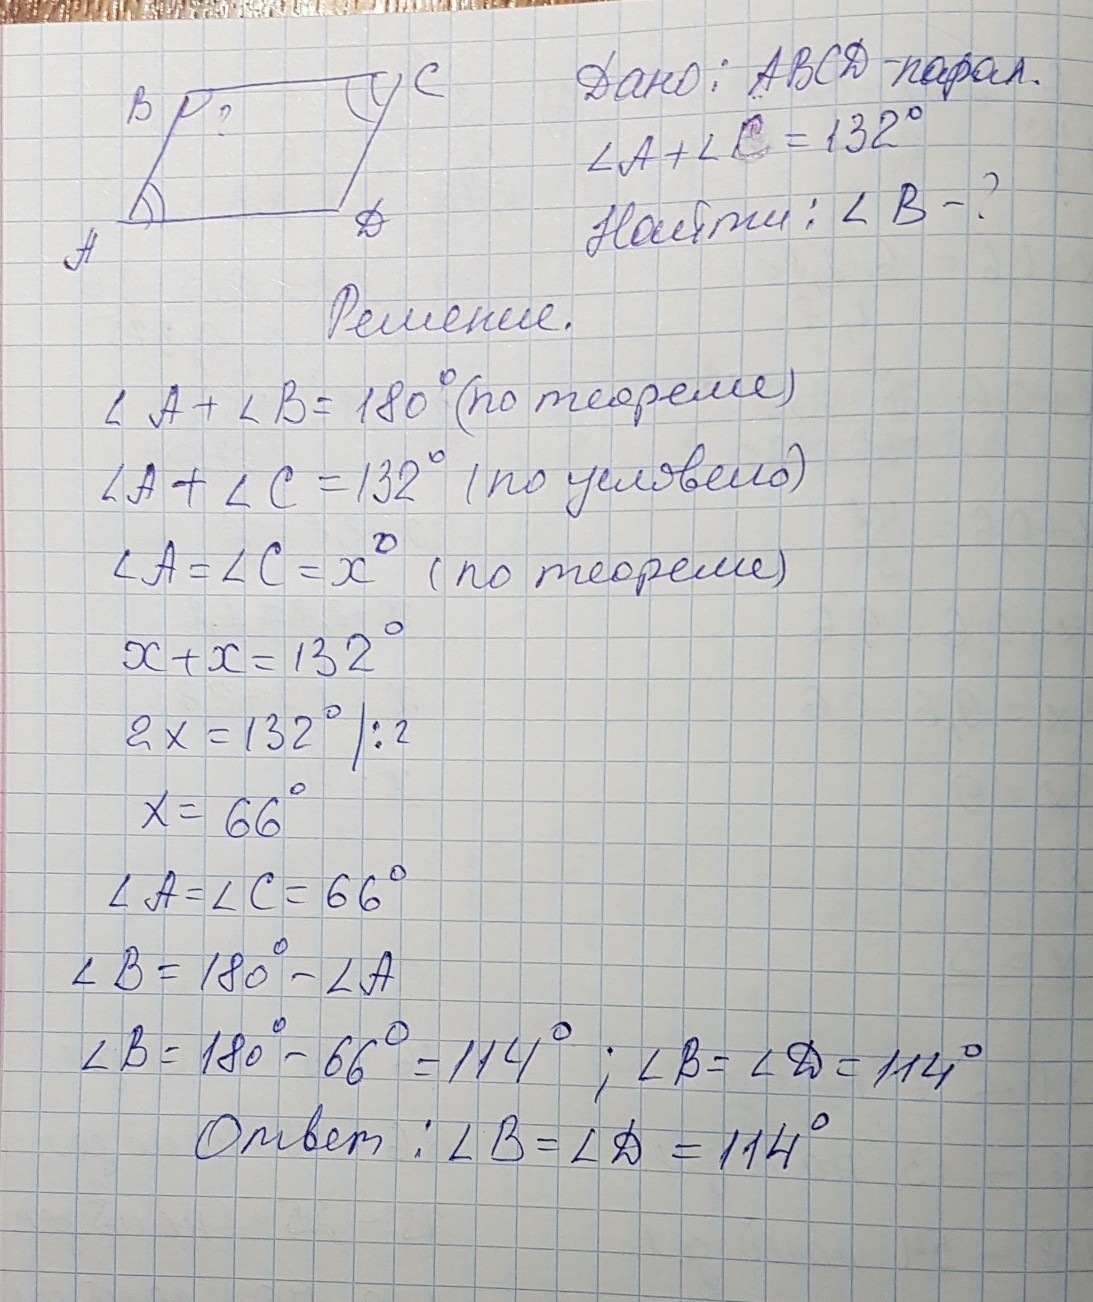 B ? C
A D
Дано: ABCD - парал.
∠A + ∠C = 132°
Найти: ∠B - ?
Решение.
∠A + ∠B = 180° (по теореме)
∠A + ∠C = 132° (по условию)
∠A = ∠C = x° (по теореме)
x + x = 132°
2x = 132° |: 2
x = 66°
∠A = ∠C = 66°
∠B = 180° - ∠A
∠B = 180° - 66° = 114° ; ∠B = ∠D = 114°
Ответ: ∠B = ∠D = 114°